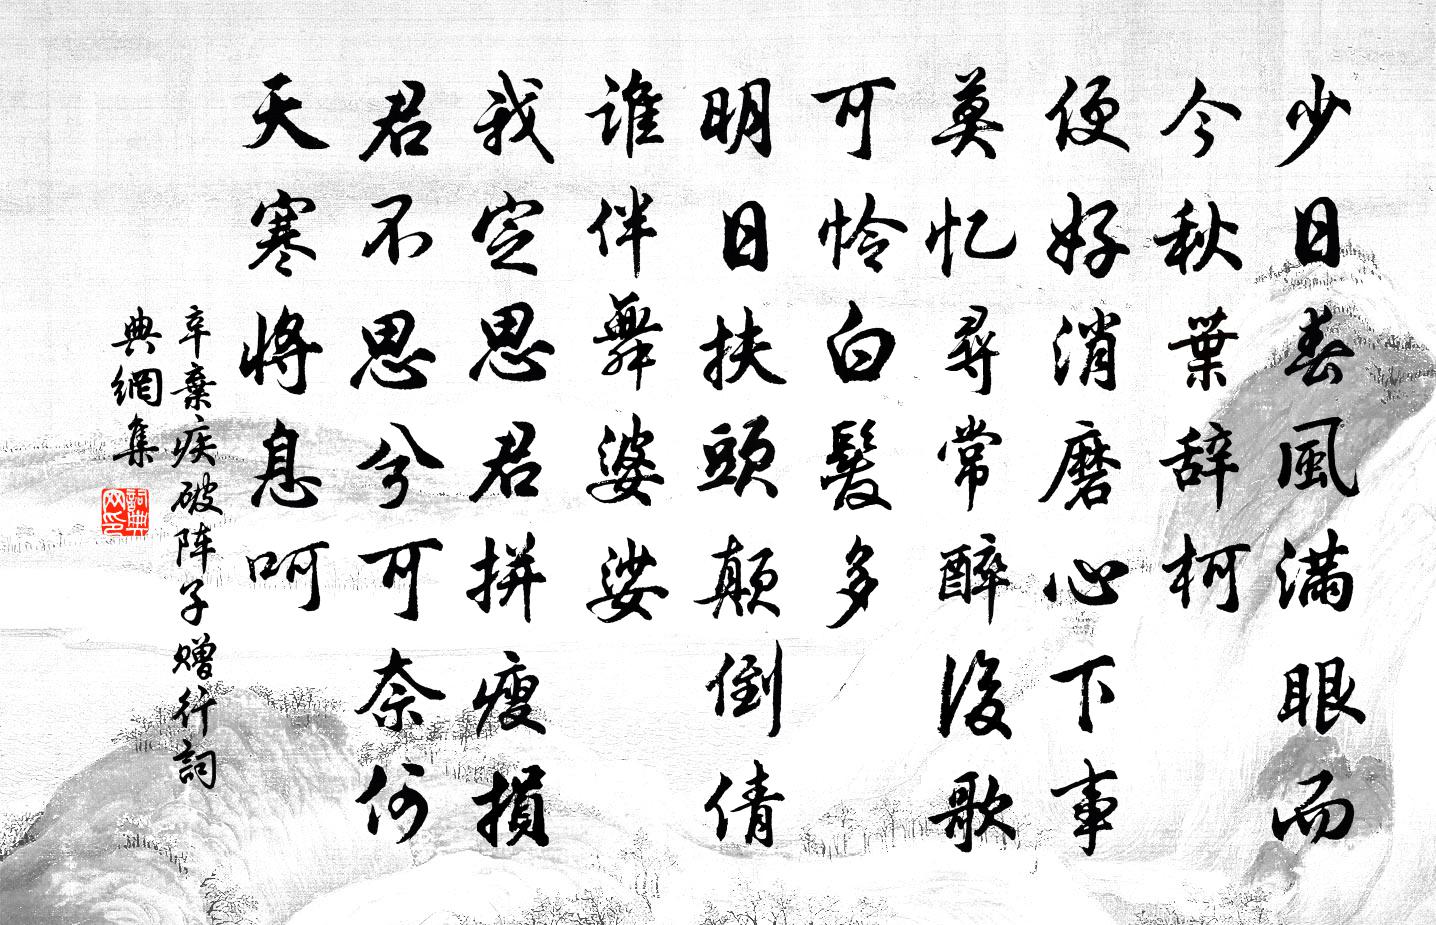 少日春風滿眼而
今秋葉辞柯
便好消磨心下事
莫忆尋常醉後歌
可怜白髮多
明日扶頭颠倒倩
谁伴舞婆娑
我定思君拼瘦損
君不思兮可奈何
天寒将息呵
辛棄疾破阵子赠行詞
典網集
詞典
网印